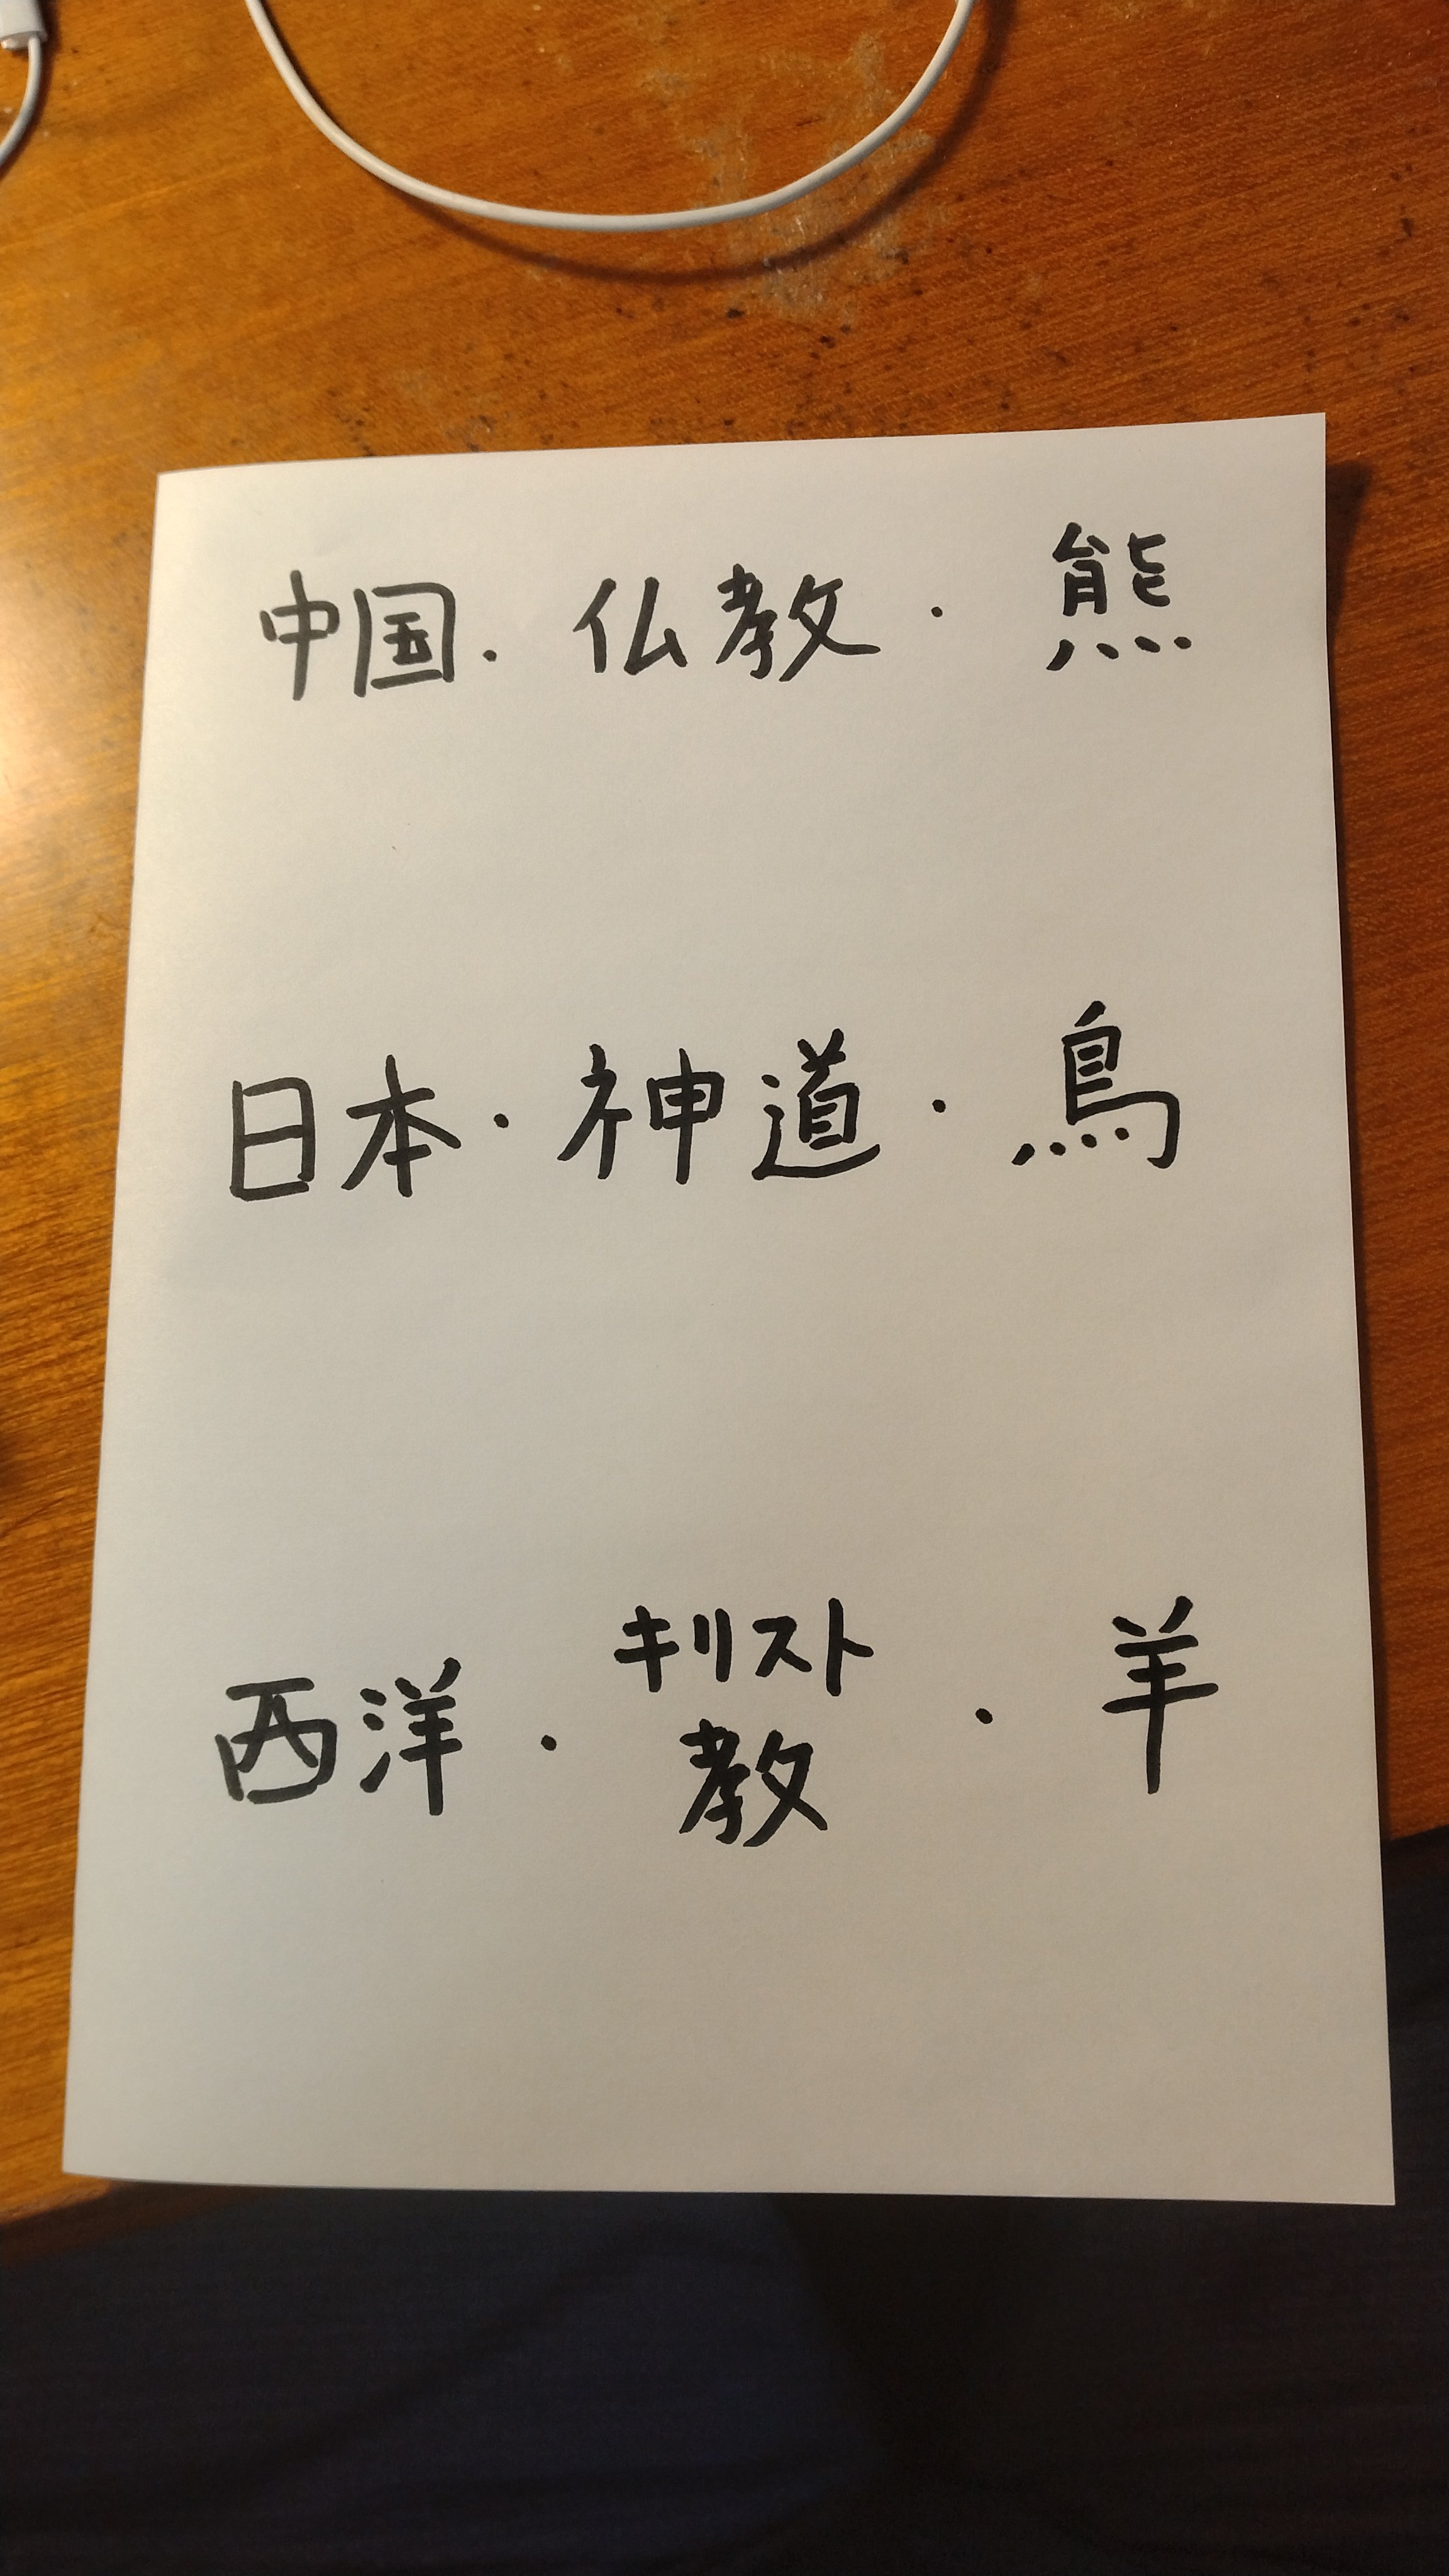 中国・仏教・熊
日本・神道・鳥
西洋・キリスト教・羊